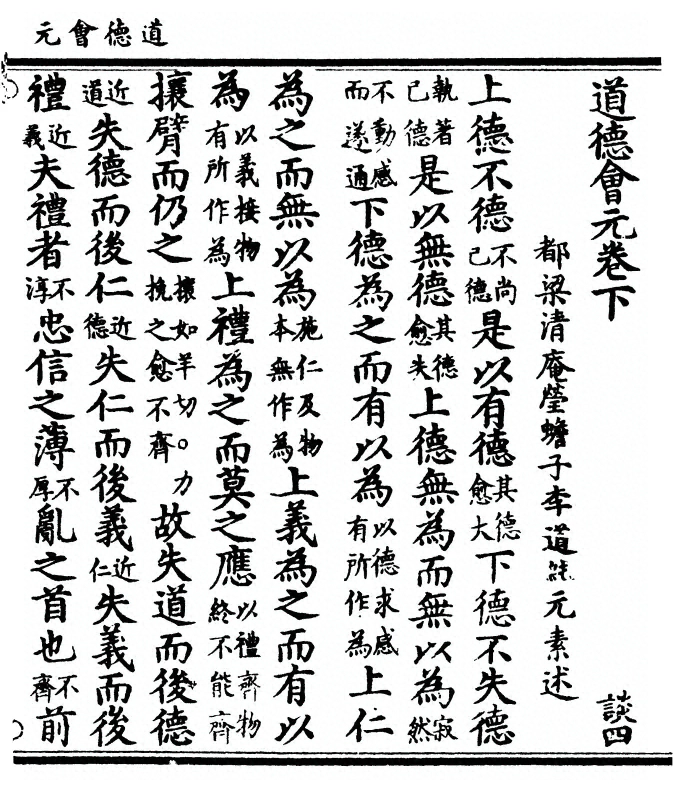 道德會元
道德會元卷下 談四
都梁清庵瑩蟾子李道純元素述
上德不德不尚己德是以有德其德愈大下德不失德
執著己德是以無德其德愈失上德無為而無以為寂然
不動感而遂通下德為之而有以為以德求感有所作為上仁
為之而無以為施仁及物本無作為上義為之而有以
為以義接物有所作為上禮為之而莫之應以禮齊物終不能齊
攘臂而仍之攘如羊切○力挽之愈不齊故失道而後德
近道失德而後仁近德失仁而後義近仁失義而後
禮近義夫禮者不淳忠信之薄不厚亂之首也不齊前